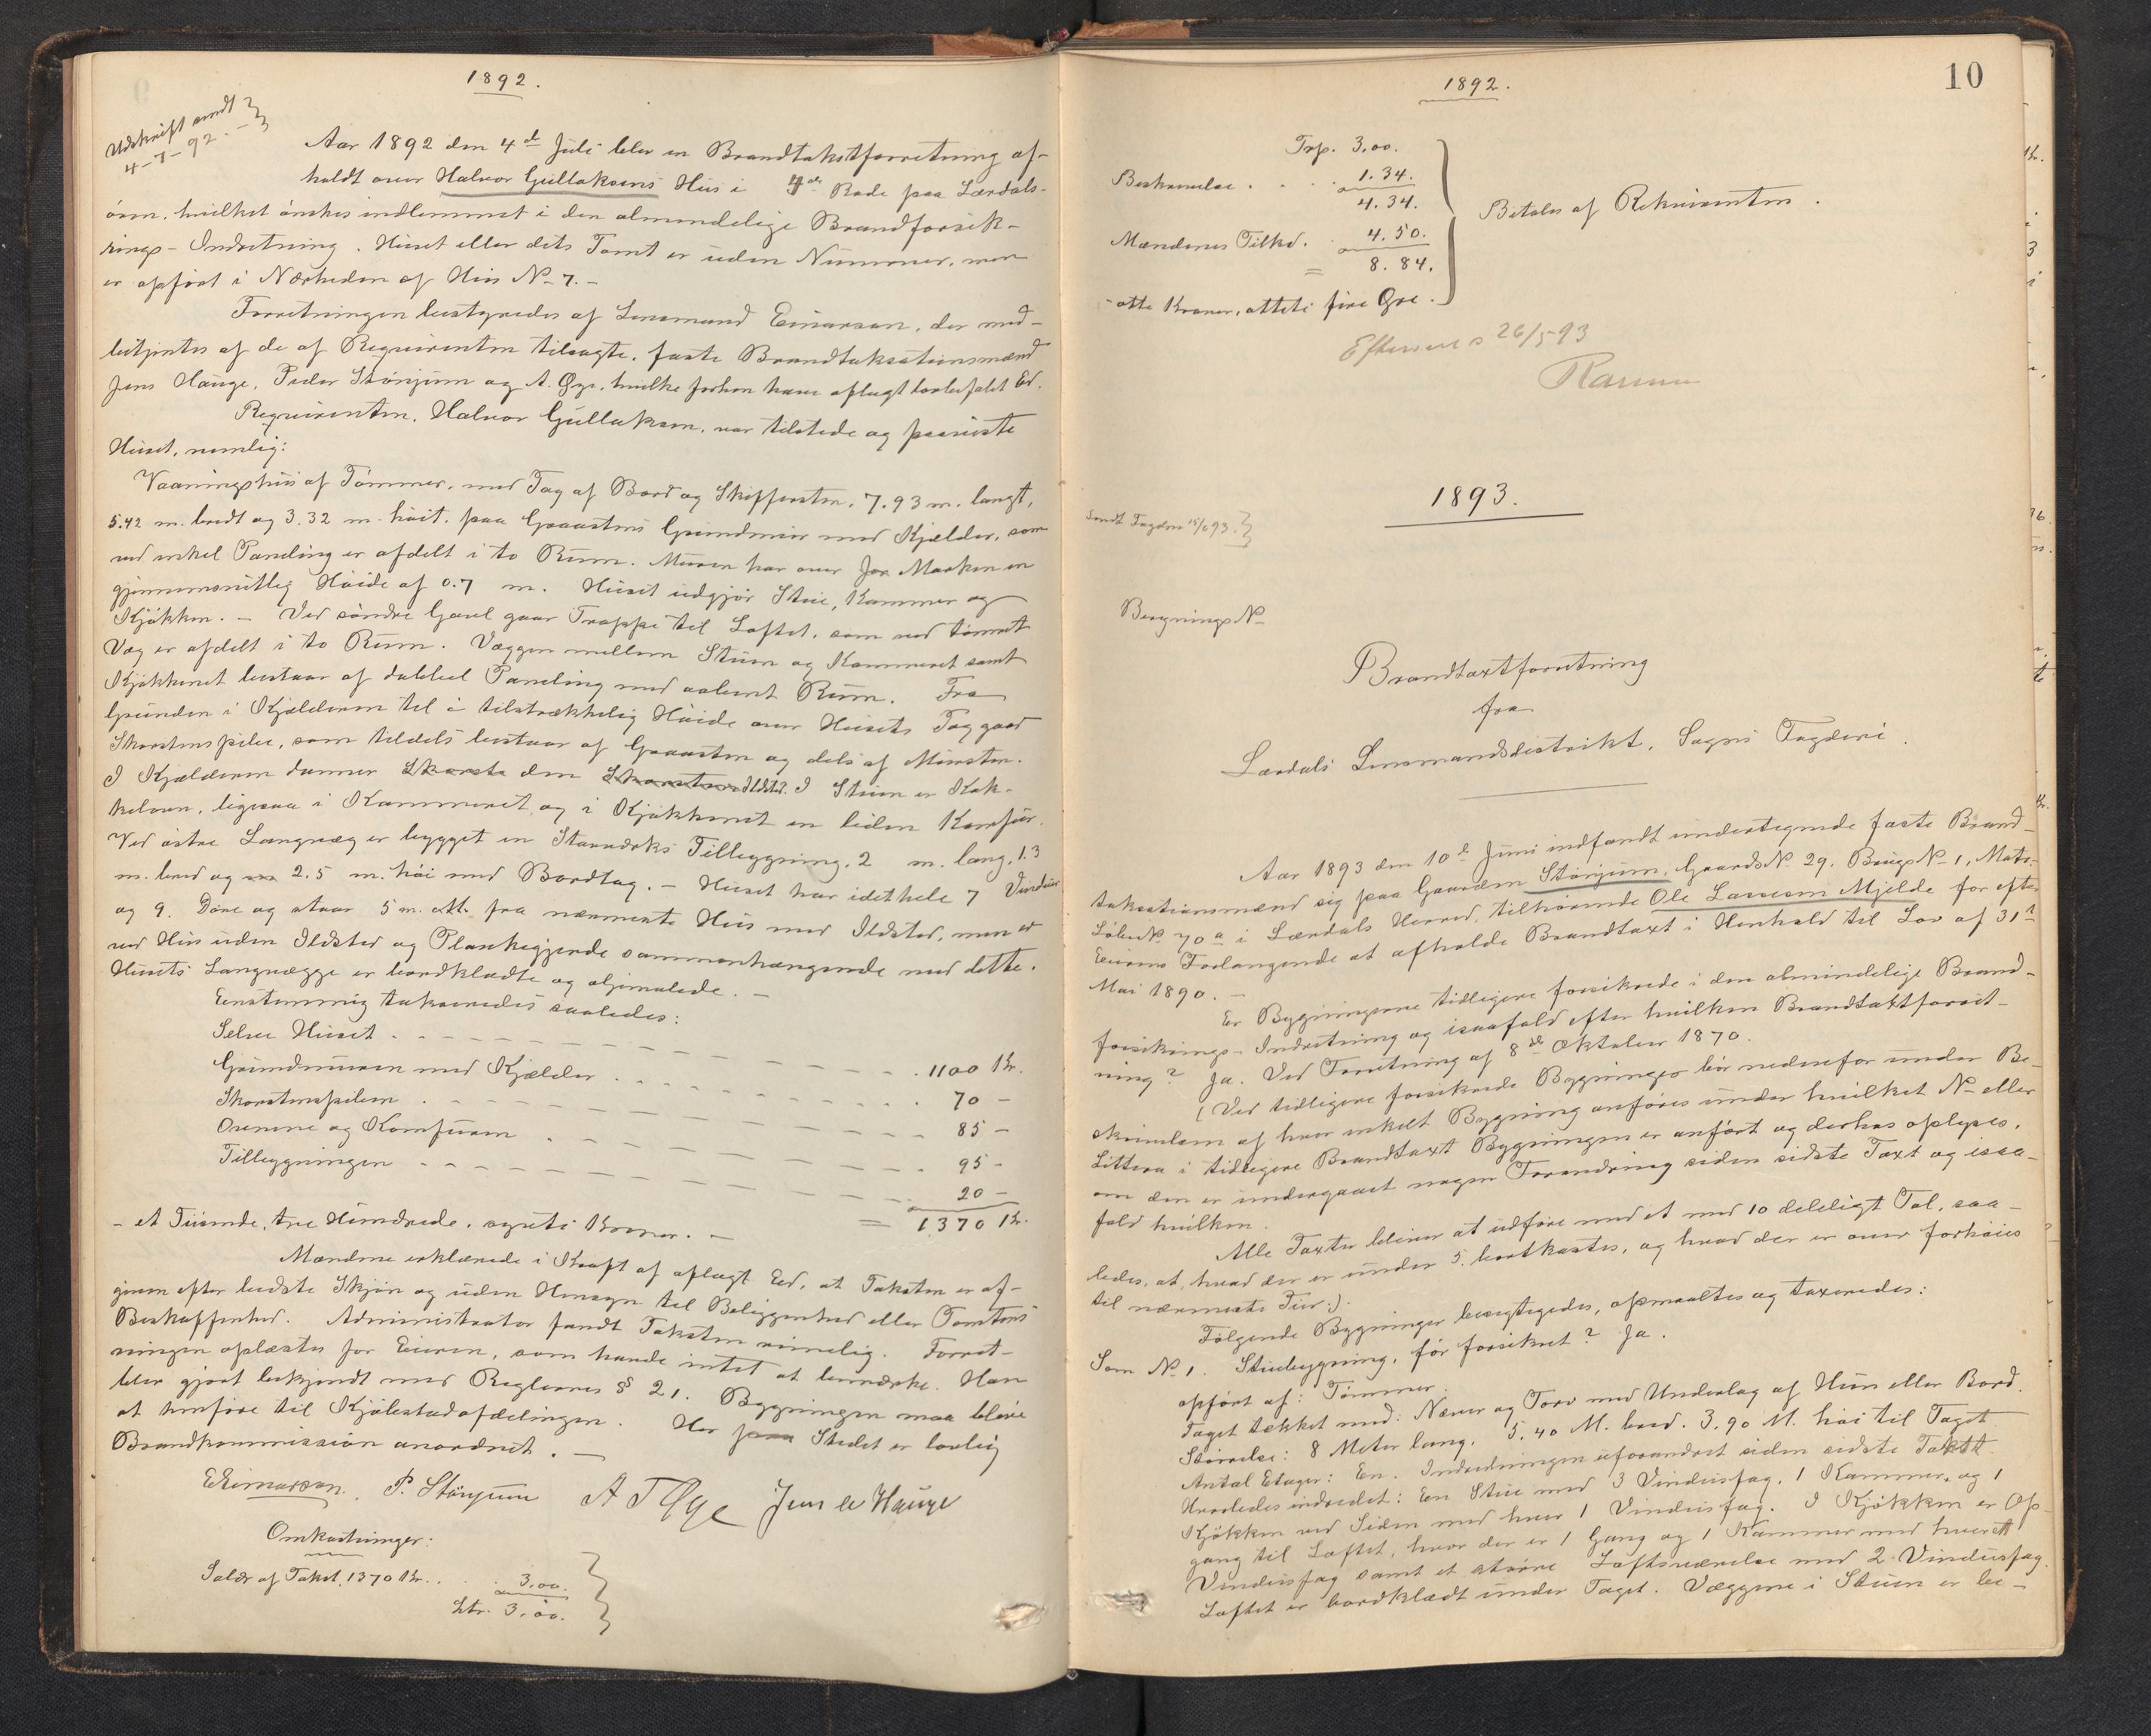 1892.
Udskrift sendt
4-7-92.
Aar 1892 den 4de Juli blev en Brandtakstforretning af-
holdt over Halvor Gullaksens Hus i 4de Rode paa Lærdals-
øren, hvilket ønskes indlemmet i den almendelige Brandforsik-
rings-Indretning. Huset eller dets Tomt er uden Nummer, men
er opført i Nærheden af Hus No 7. -
Forretningen bestyredes af Lensmand Einarsen, der med-
betjentes af de af Reqvirenten tilsagte, faste Brandtaksationsmænd
Jens Hauge, Peder Stönjum og A. Øye, hvilke forhen have aflagt lovbefalet Ed.
Reqvirenten, Halvor Gullaksen, var tilstede og paaviste
Huset, nemlig:
Vaaningshus af Tömmer, med Tag af Bord og Skifersten, 7.93 m. langt,
5.42 m. bredt og 3.32 m. høit, paa Graastens Grundmur med Kjælder, som
ved enkel Paneling er afdelt i to Rum. Muren har over Jor Marken en
gjennemsnitlig Høide af 0.7 m. Huset udgjør Stue, Kammer og
Kjøkken. - Ved søndre Gavl gaar Trappe til Loftet, som ved tømret
Væg er afdelt i to Rum. Væggen mellem Stuen og Kammeret samt
Kjøkkenet bestaar af dobbel Paneling med aabent Rum. Fra
Grunden i Kjælderen til i tilstrækkelig Høide over Husets Tag gaar
Skorstenspibe, som tildels bestaar af Graasten og dels af Mursten.
I Kjælderen danner Skorste den Skorsten Ildsted. I Stuen er Kak-
kelovn, ligesaa i Kammeret og i Kjøkkenet en liden Komfur.
Ved østre Langvæg er bygget en Stavverks Tilbygning, 2 m. lang, 1.3
m. bred og 2.5 m. høi med Bordtag. - Huset har idethele 7 Vinduer
og 9. Døre og staar 5 m. fra nærmeste Hus med Ildsted, men er
ved Hus uden Ildsted og Plankegjerde sammenhængende med dette.
Husets Langvægge er bordklædte og oljemalede. -
Eenstemmig takseredes saaledes:
Selve Huset . - - - - - 1100 Kr.
Grundmuren med Kjælder . - - - - 70 -
Skorstenspiben . - - - - 85 -
Ovnene og Komfuren . - - - - 95 -
Tilbygningen - - - - 20 -
- et Tusende, tre Hundrede, sytti Kroner. - = 1370 Kr.
Mændene erklærede i Kraft af aflagt Eed, at Taksten er af-
given efter bedste Skjøn og uden Hensyn til Beliggenhed eller Tomtens
Beskaffenhed. Administrator fandt Taksten rimelig. Forret-
ningen oplæstes for Eieren, som havde intet at bemærke. Han
blev gjort bekjendt med Reglernes § 21. Bygningen maa blive
at henføre til Kjøbstadafdelingen. Her paa Stedet er lovlig
Brandkommission anordnet. -
EEinarsen. P. Stönjum A T Øye Jens A Hauge
Omkostninger:
Salær af Takst. 1370 Kr. . . 3,00.
Ltr. 3,00.
1892.
10
Trp. 3,00.
Beskrivelse . . . 1.34.
4.34.
Mændenes Tilkd. . 4.50.
= 8.84.
- otte Kroner, otteti fire Øre.
Betales af Rekvirenten.
Efterseet 26/5 93
1893.
Sendt Fogden 15/6 93.
Bygnings No
Brandtaxtforretning
fra
Lærdals Lensmandsdistrikt, Sogns Fogderi.
Aar 1893 den 10de Juni indfandt undertegnede faste Brand-
taksationsmænd sig paa Gaarden Stönjum, Gaards No 29. Brugs No 1, Matr.
Løbe No 70a i Lærdals Herred, tilhørende Ole Larsen Mjelde for efter
Eierens Forlangende at afholde Brandtaxt i Henhold til Lov af 31te
Mai 1890. -
Er Bygningerne tidligere forsikrede i den almindelige Brand-
forsikrings-Indretning og isaafald efter hvilken Brandtaxtforret-
ning? Ja. Ved Forretning af 8de Oktober 1870.
(Ved tidligere forsikrede Bygninger bør nedenfor under Be-
skrivelsen af hver enkelt Bygning anføres under hvilket No eller
Littera i tidligere Brandtaxt Bygningen er anført og derhos oplyses,
om den er undergaaet nogen Forandring siden sidste Taxt og isaa-
fald hvilken.
Alle Taxter bliver at udføre med et med 10 deleligt Tal, saa-
ledes, at, hvad der er under 5, bortkastes, og hvad der er over forhøies
til nærmeste Tier:).
Følgende Bygninger besigtigedes, opmaaltes og taxeredes:
Som No 1. Stuebygning, før forsikret? Ja.
opført af: Tømmer.
Taget tækket med: Næver og Torv med Underlag af Hun eller Bord.
Størrelse: 8 Meter lang, 5,40 M. bred. 3.90 M. høi til Taget
Antal Etager: En. Indredningen uforandret siden sidste Takst.
Hvorledes indredet: En Stue med 3 Vindusfag, 1 Kammer, og 1
Kjøkken ved Siden med hver 1 Vindus fag. I Kjøkken er Op-
gang til Loftet, hvor der er 1 Gang og 1 Kammer med hver et
Vindusfag samt et større Loftsværelse med 2 Vindusfag.
Loftet er bordklædt under Taget. Væggene i Stuen er be-